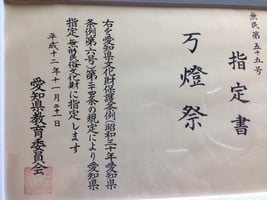 無民第五十五号
指定書
万燈祭
右を愛知県文化財保護条例(昭和三十年愛知県
条例第六号)第二十四条の規定により愛知県
指定無形民俗文化財に指定します
平成十二年十一月二十一日
愛知県教育委員会